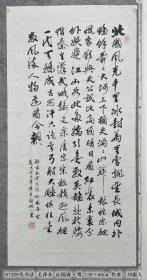 北國風光千里冰封萬里雪飄望長城内外
惟餘莽莽大河上下頓失滔滔山舞銀蛇原
馳蠟象欲與天公試比高須晴日看紅裝素
裹分外妖嬈江山如此多嬌引無數英雄競
折腰惜秦皇漢武略輸文采唐宗宋祖稍遜風騷
一代天驕成吉思汗只識彎弓射大雕俱往矣
數風流人物還看今朝
号书法 毛泽东 沁园春·雪 138×68cm 作者：